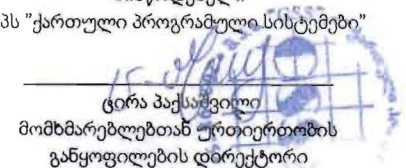 პს "ქართული პროგრამული სისტემები"
ცირა პაქსაშვილი
მომხმარებლებთან ურთიერთობის
განყოფილების დირექტორი